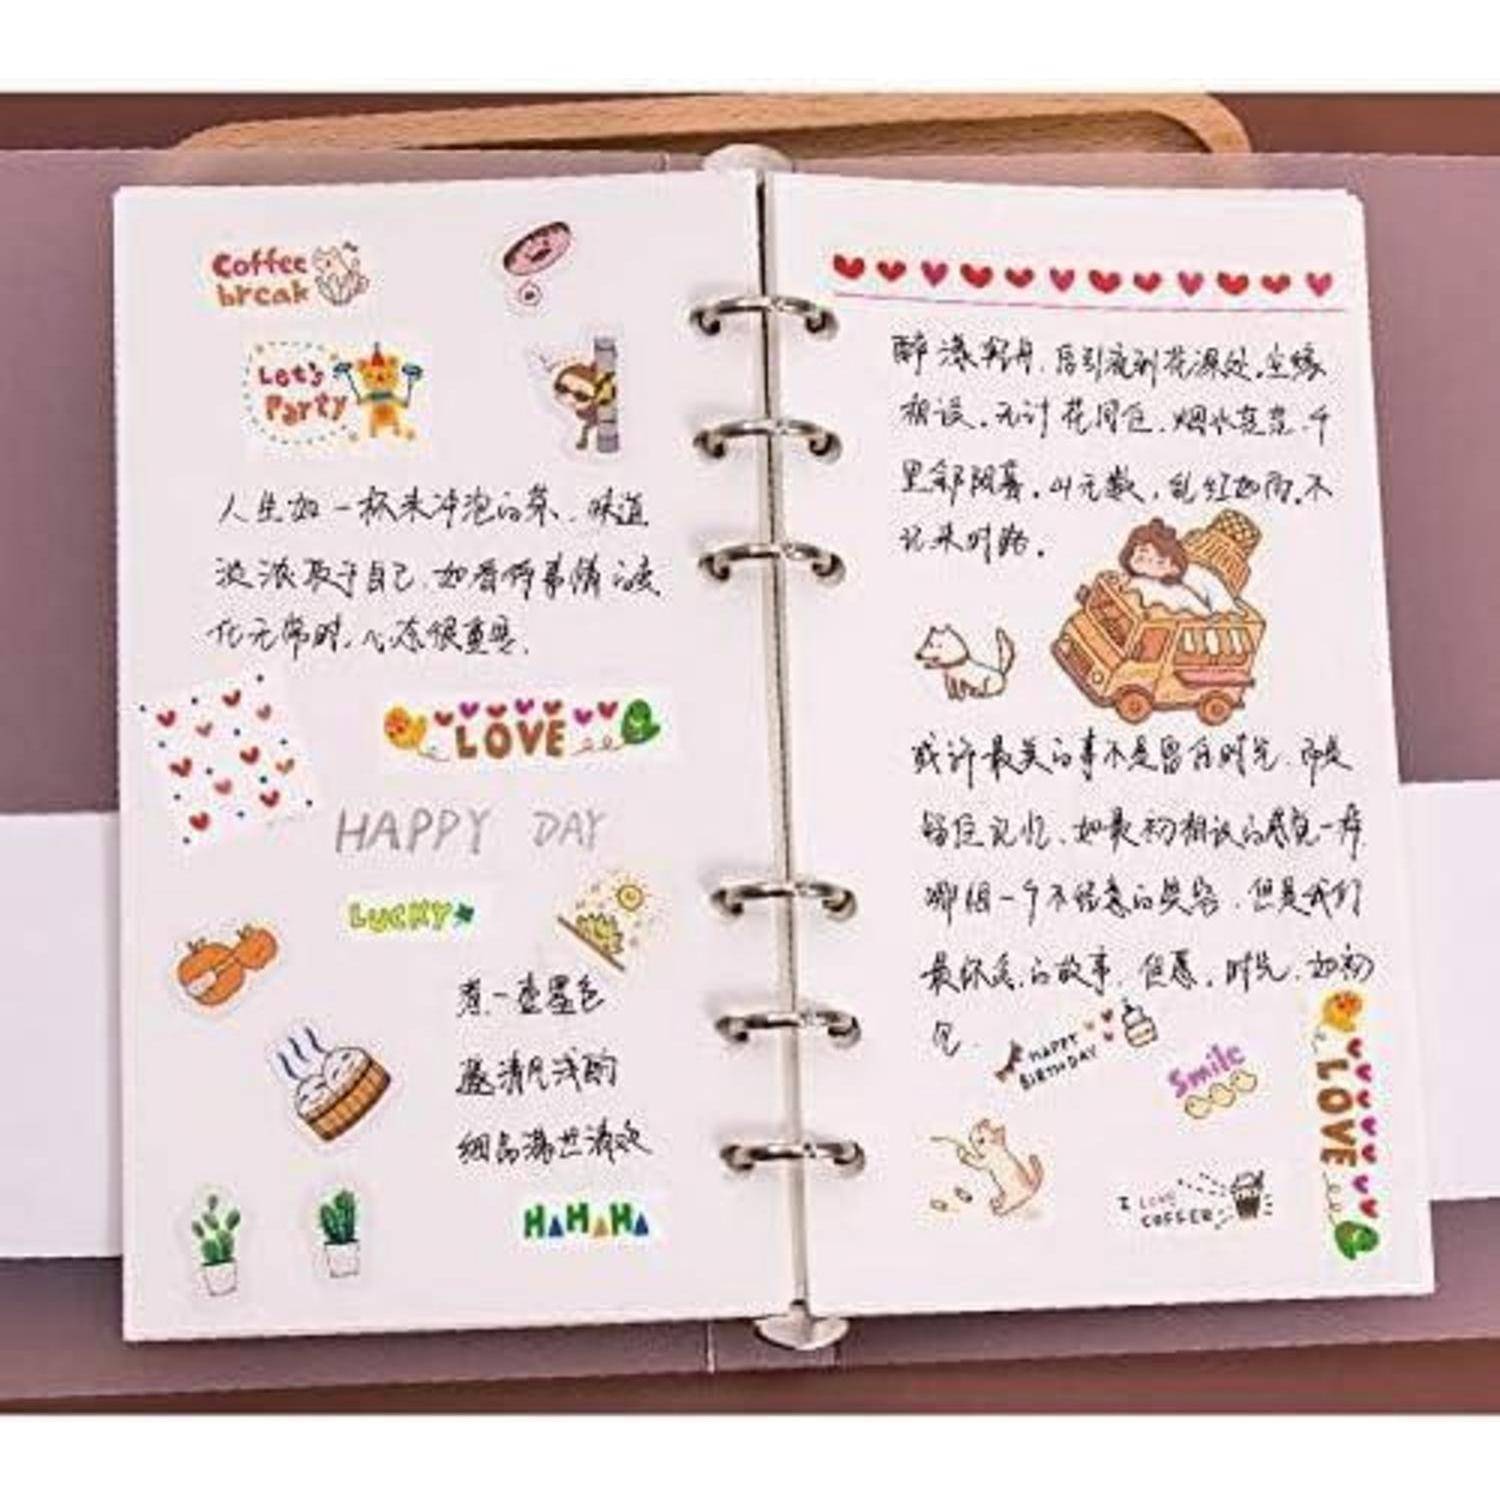 Coffee
break
Let's
Party
人生如一杯未冲泡的茶、味道
淡浓取于自己.如看待事情的变
化无常时,心态很重要.
LOVE
HAPPY DAY
LUCKY
煮一壶墨色
盛清风浅酌
细品满世清欢
HAHAHA
醉漾轻舟,信引流到花源处.尘缘
相误.无计花间住.烟水茫茫.千
里斜阳暮.山无数,乱红如雨.不
记来时路.
或许最美的事不是留住时光.而是
留住记忆、如最初相识的感觉一样
哪怕一个不经意的笑容.但是我们
最怀念的故事.但愿,时光.如初
见.
HAPPY
BIRTHDAY
Smile
LOVE
I LOVE
COFFEE